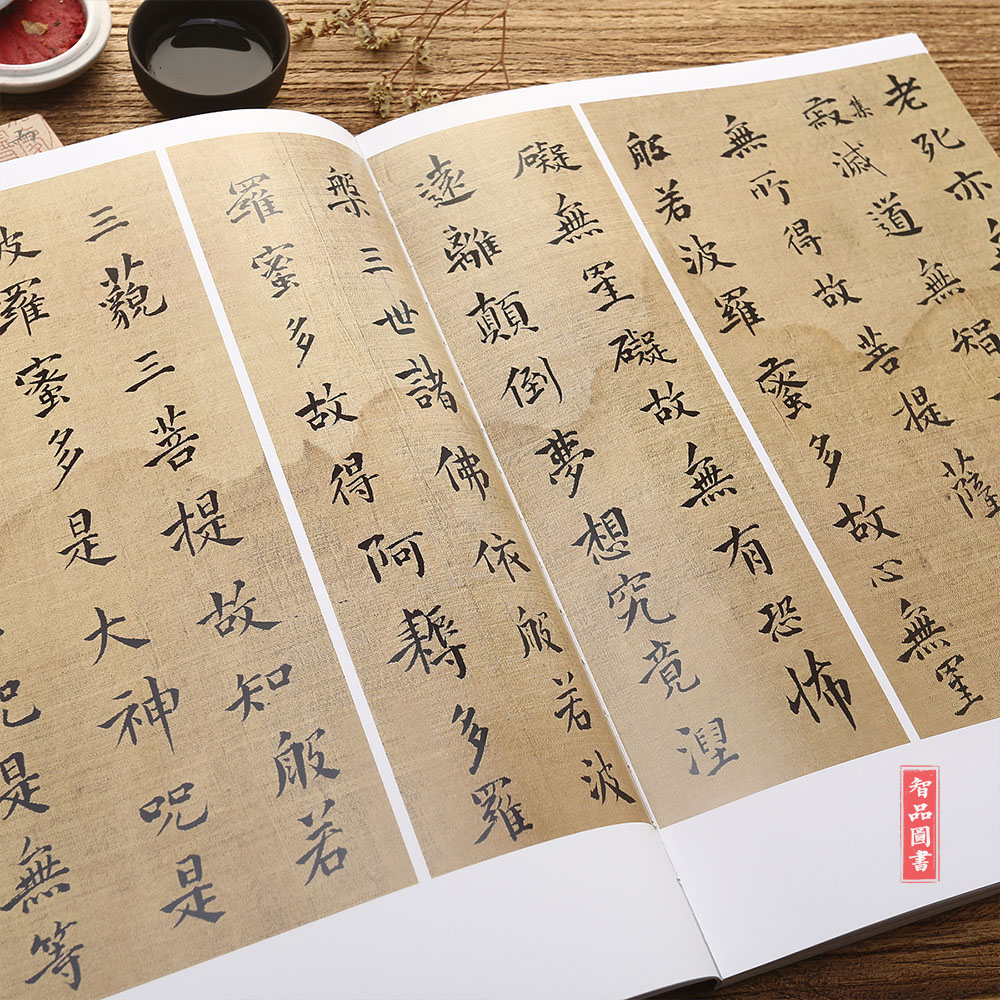 老死亦
集
寂滅道無智
無所得故菩提薩
般若波羅蜜多故心無罣
礙無罣礙故無有恐怖
遠離顛倒夢想究竟涅
槃三世諸佛依般若波
羅蜜多故得阿耨多羅
三藐三菩提故知般若
波羅蜜多是大神咒是
咒是無等
智品圖書